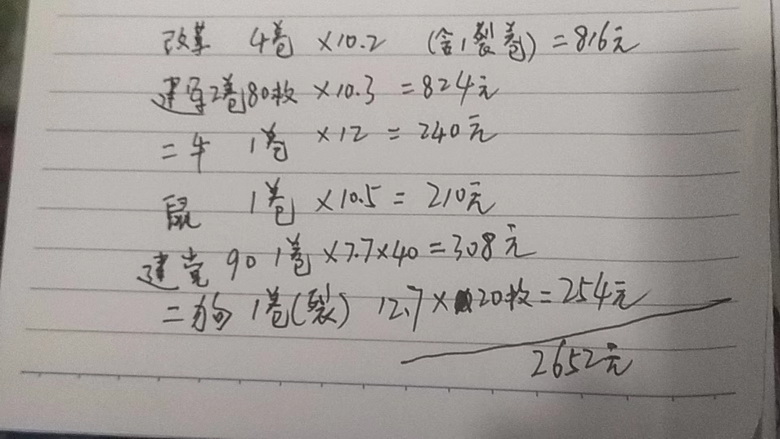 改革 4卷 ×10.2 (含1裂卷) =816元
建军2卷80枚 ×10.3 =824元
二牛 1卷 ×12 = 240元
鼠 1卷 ×10.5 = 210元
建党 90 1卷 ×7.7×40 =308元
二狗 1卷(裂) 12.7× 20枚 =254元
2652元